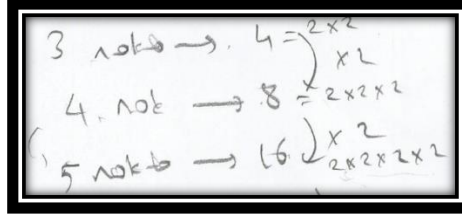 3 nokta → 4 = 2x2
x2
4. nok → 8 = 2x2x2
x 2
5 nokta → 16 2x2x2x2